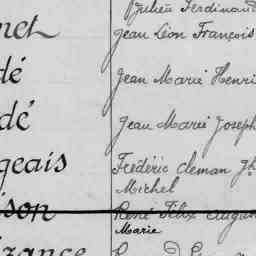 Julien Ferdinand
net Jean Léon François
dé Jean Marie Henri
dé Jean Marie Joseph
geais Frédéric cleman Jh
Michel
ison René Félix Augus
Marie